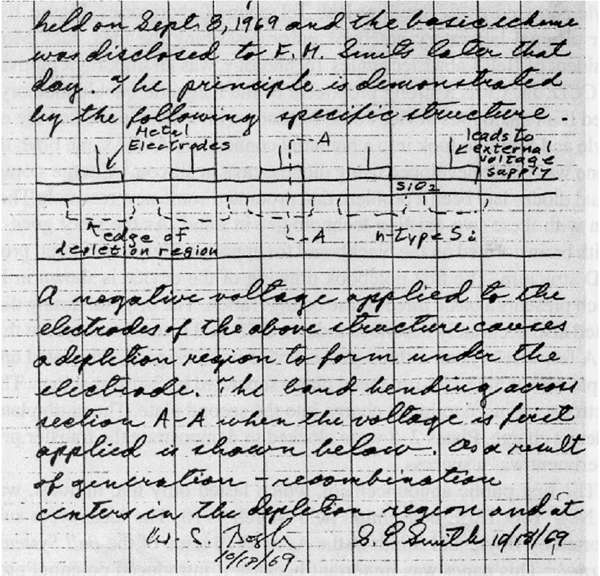 held on Sept. 8, 1969 and the basic scheme
was disclosed to F. M. Smits later that
day. The principle is demonstrated
by the following specific structure.
Metal
Electrodes
A
leads to
external
voltage
supply
SiO2
edge of
depletion region
A
n-type Si
A negative voltage applied to the
electrodes of the above structure causes
a depletion region to form under the
electrode. The band bending across
section A-A when the voltage is first
applied is shown below. As a result
of generation - recombination
centers in the depletion region and at
W. S. Boyle
10/18/69
G. E Smith 10/18/69